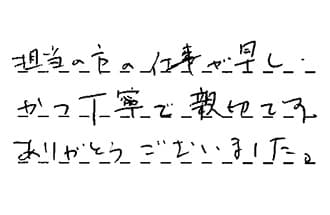 担当の方の仕事が早く.
かつ丁寧で親切です。
ありがとうございました。